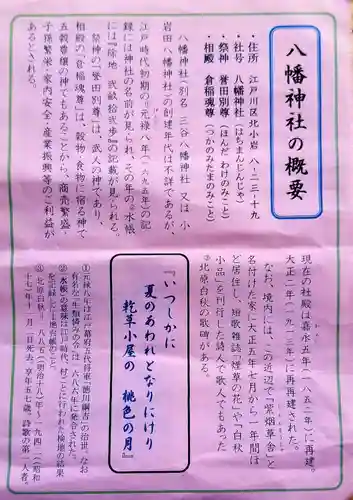 八幡神社の概要
・住所 江戸川区北小岩 八-二三-十九
・社号 八幡神社(はちまんじんじゃ)
・祭神 誉田別尊(ほんだ わけのみこと)
・相殿 倉稲魂尊(つかのみたまのみこと)
八幡神社(別名 三谷八幡神社 又は 小
岩田八幡神社)の創建年代は不詳であるが、
江戸時代初期の①元禄八年(一六九五年)の記
録には神社の名前が見られ、その年の②水帳
には『除地 弐畝拾弐歩』の記載が見られる。
祭神の「誉田別尊」は、武人の神であり、
相殿の「倉稲魂尊」は、穀物・食物に宿る神で
五穀豊穣の神でもあることから、商売繁盛・
子孫繁栄・家内安全・産業振興等のご利益が
あるとされる。
現在の社殿は嘉永五年(一八五二年)に再建。
大正二年(一九一三年)に再再建された。
なお、境内には、この近辺で「紫烟草舎」と
名付けた家に大正五年七月から一年間ほ
ど居住し、短歌雑誌「煙草の花」や「白秋
小品」を刊行した詩人で歌人でもあった
③北原白秋の歌碑がある。
『いつしかに
夏のあわれとなりにけり
乾草小屋の 桃色の月』
①元禄八年は江戸幕府五代将軍「徳川綱吉」の治世、なお
有名な「生類憐みの令」は一六八七年に発令された。
②水帳の意味は江戸時代、村ごとに行われた検地の結果
を記録した土地台帳のこと。
③北原白秋=一八八五(明治十八)年〜一九四二(昭和
十七)年十一月二日死去。享年五七歳。詩歌の第一人者。